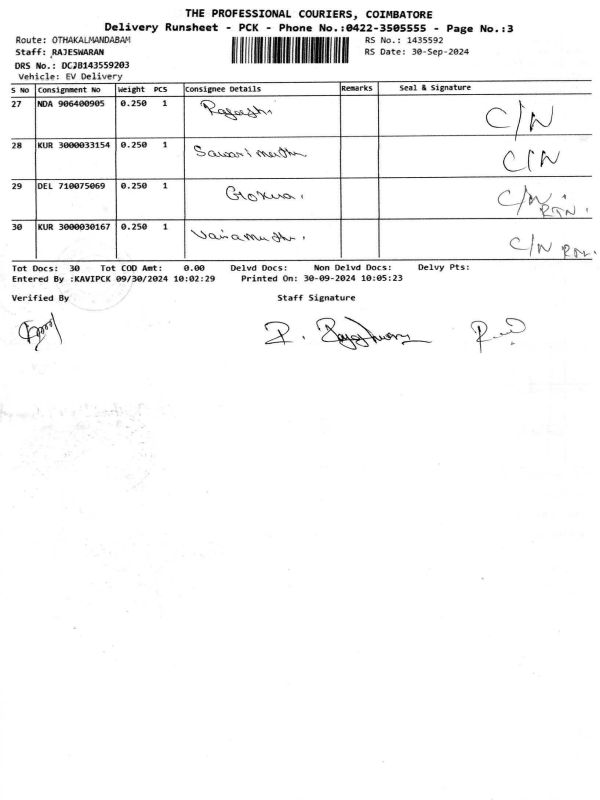 THE PROFESSIONAL COURIERS, COIMBATORE
Delivery Runsheet - PCK - Phone No.:0422-3505555 - Page No.:3
Route: OTHAKALMANDABAM
RS No.: 1435592
Staff: RAJESWARAN
RS Date: 30-Sep-2024
DRS No.: DCJB143559203
Vehicle: EV Delivery
S No Consignment No Weight PCS Consignee Details Remarks Seal & Signature
27 NDA 906400905 0.250 1 C/N
28 KUR 3000033154 0.250 1 C/N
29 DEL 710075069 0.250 1 Gokul. C/N RTN.
30 KUR 3000030167 0.250 1 Vairamuthu. C/N RTN.
Tot Docs: 30 Tot COD Amt: 0.00 Delvd Docs: Non Delvd Docs: Delvy Pts:
Entered By :KAVIPCK 09/30/2024 10:02:29 Printed On: 30-09-2024 10:05:23
Verified By Staff Signature